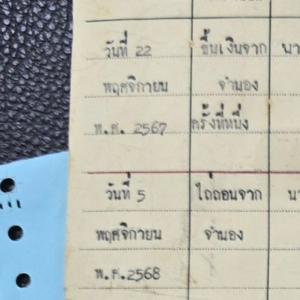 วันที่ 22 ขึ้นเงินจาก นา
พฤศจิกายน จำนอง
พ.ศ. 2567 ครั้งที่หนึ่ง
วันที่ 5 ไถ่ถอนจาก นา
พฤศจิกายน จำนอง
พ.ศ.2568